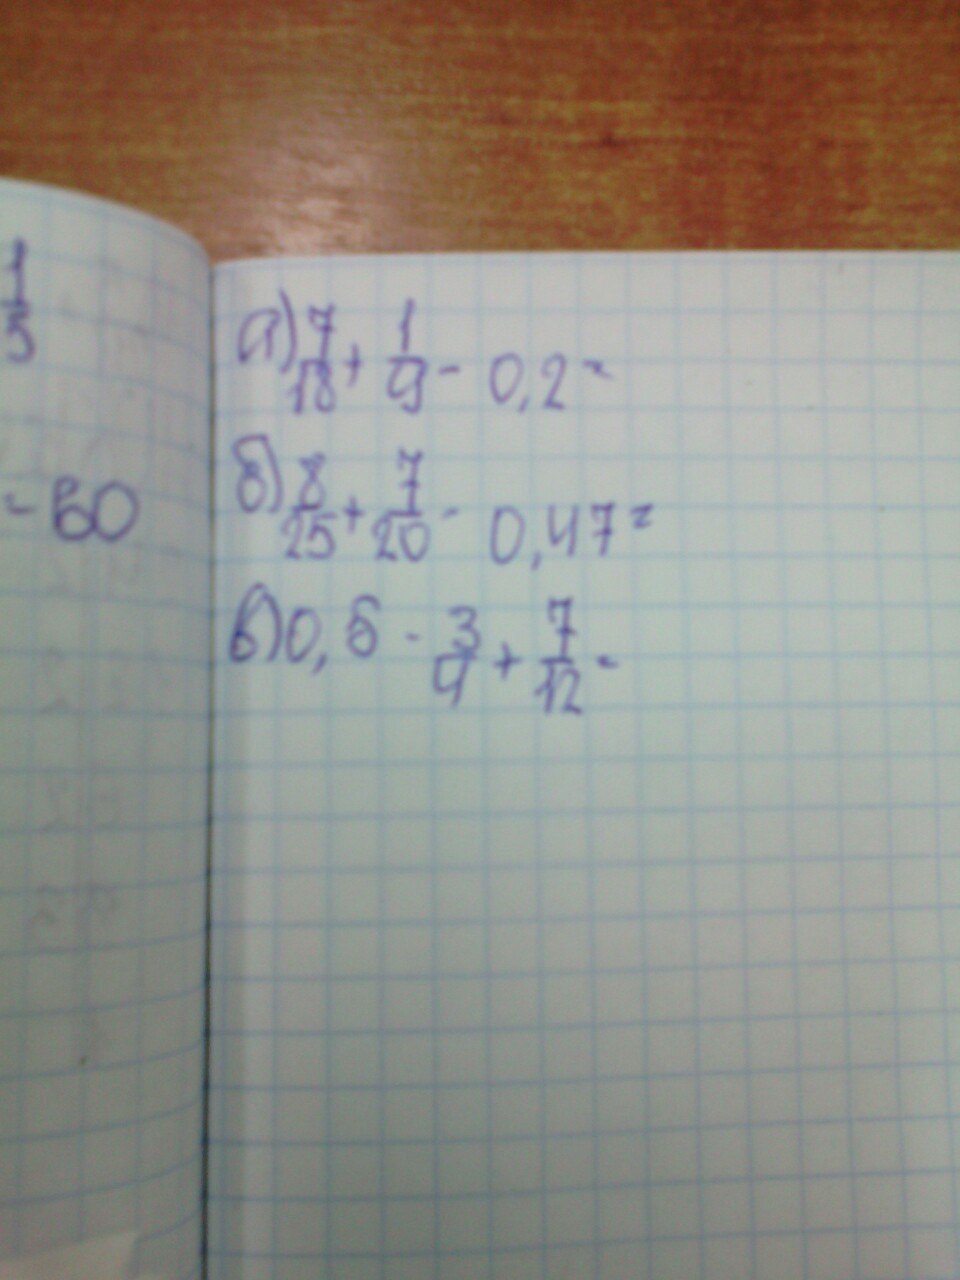 1/5
= 60
а) 7/18 + 1/9 - 0,2 =
б) 8/25 + 7/20 - 0,47 =
в) 0,6 - 3/4 + 7/12 =